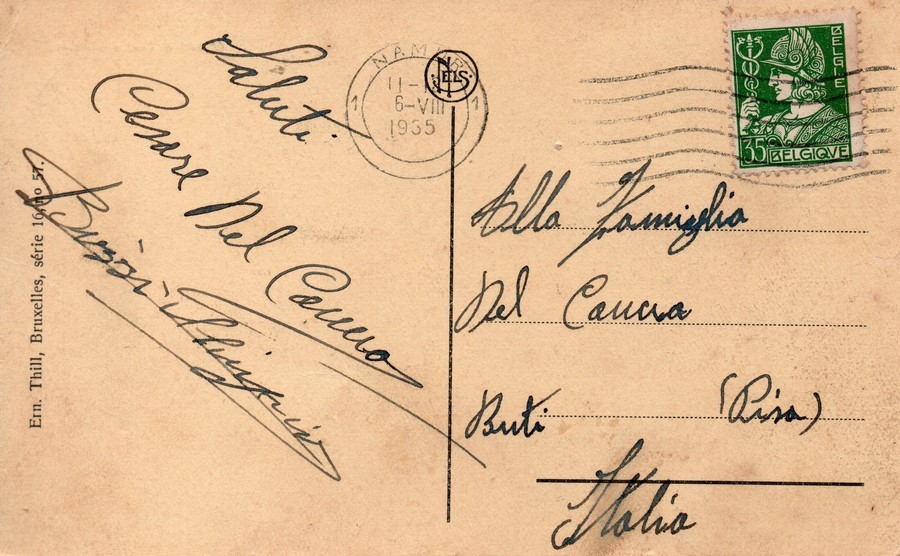 Saluti
Cesare Del
Caucra
Ern. Thill, Bruxelles, série 16, No 57.
NAMUR
6-VIII
1935
1 1
NELS
BELGIE
35c BELGIQUE
Alla Famiglia
Del Caucra
Buti (Pisa)
Italia